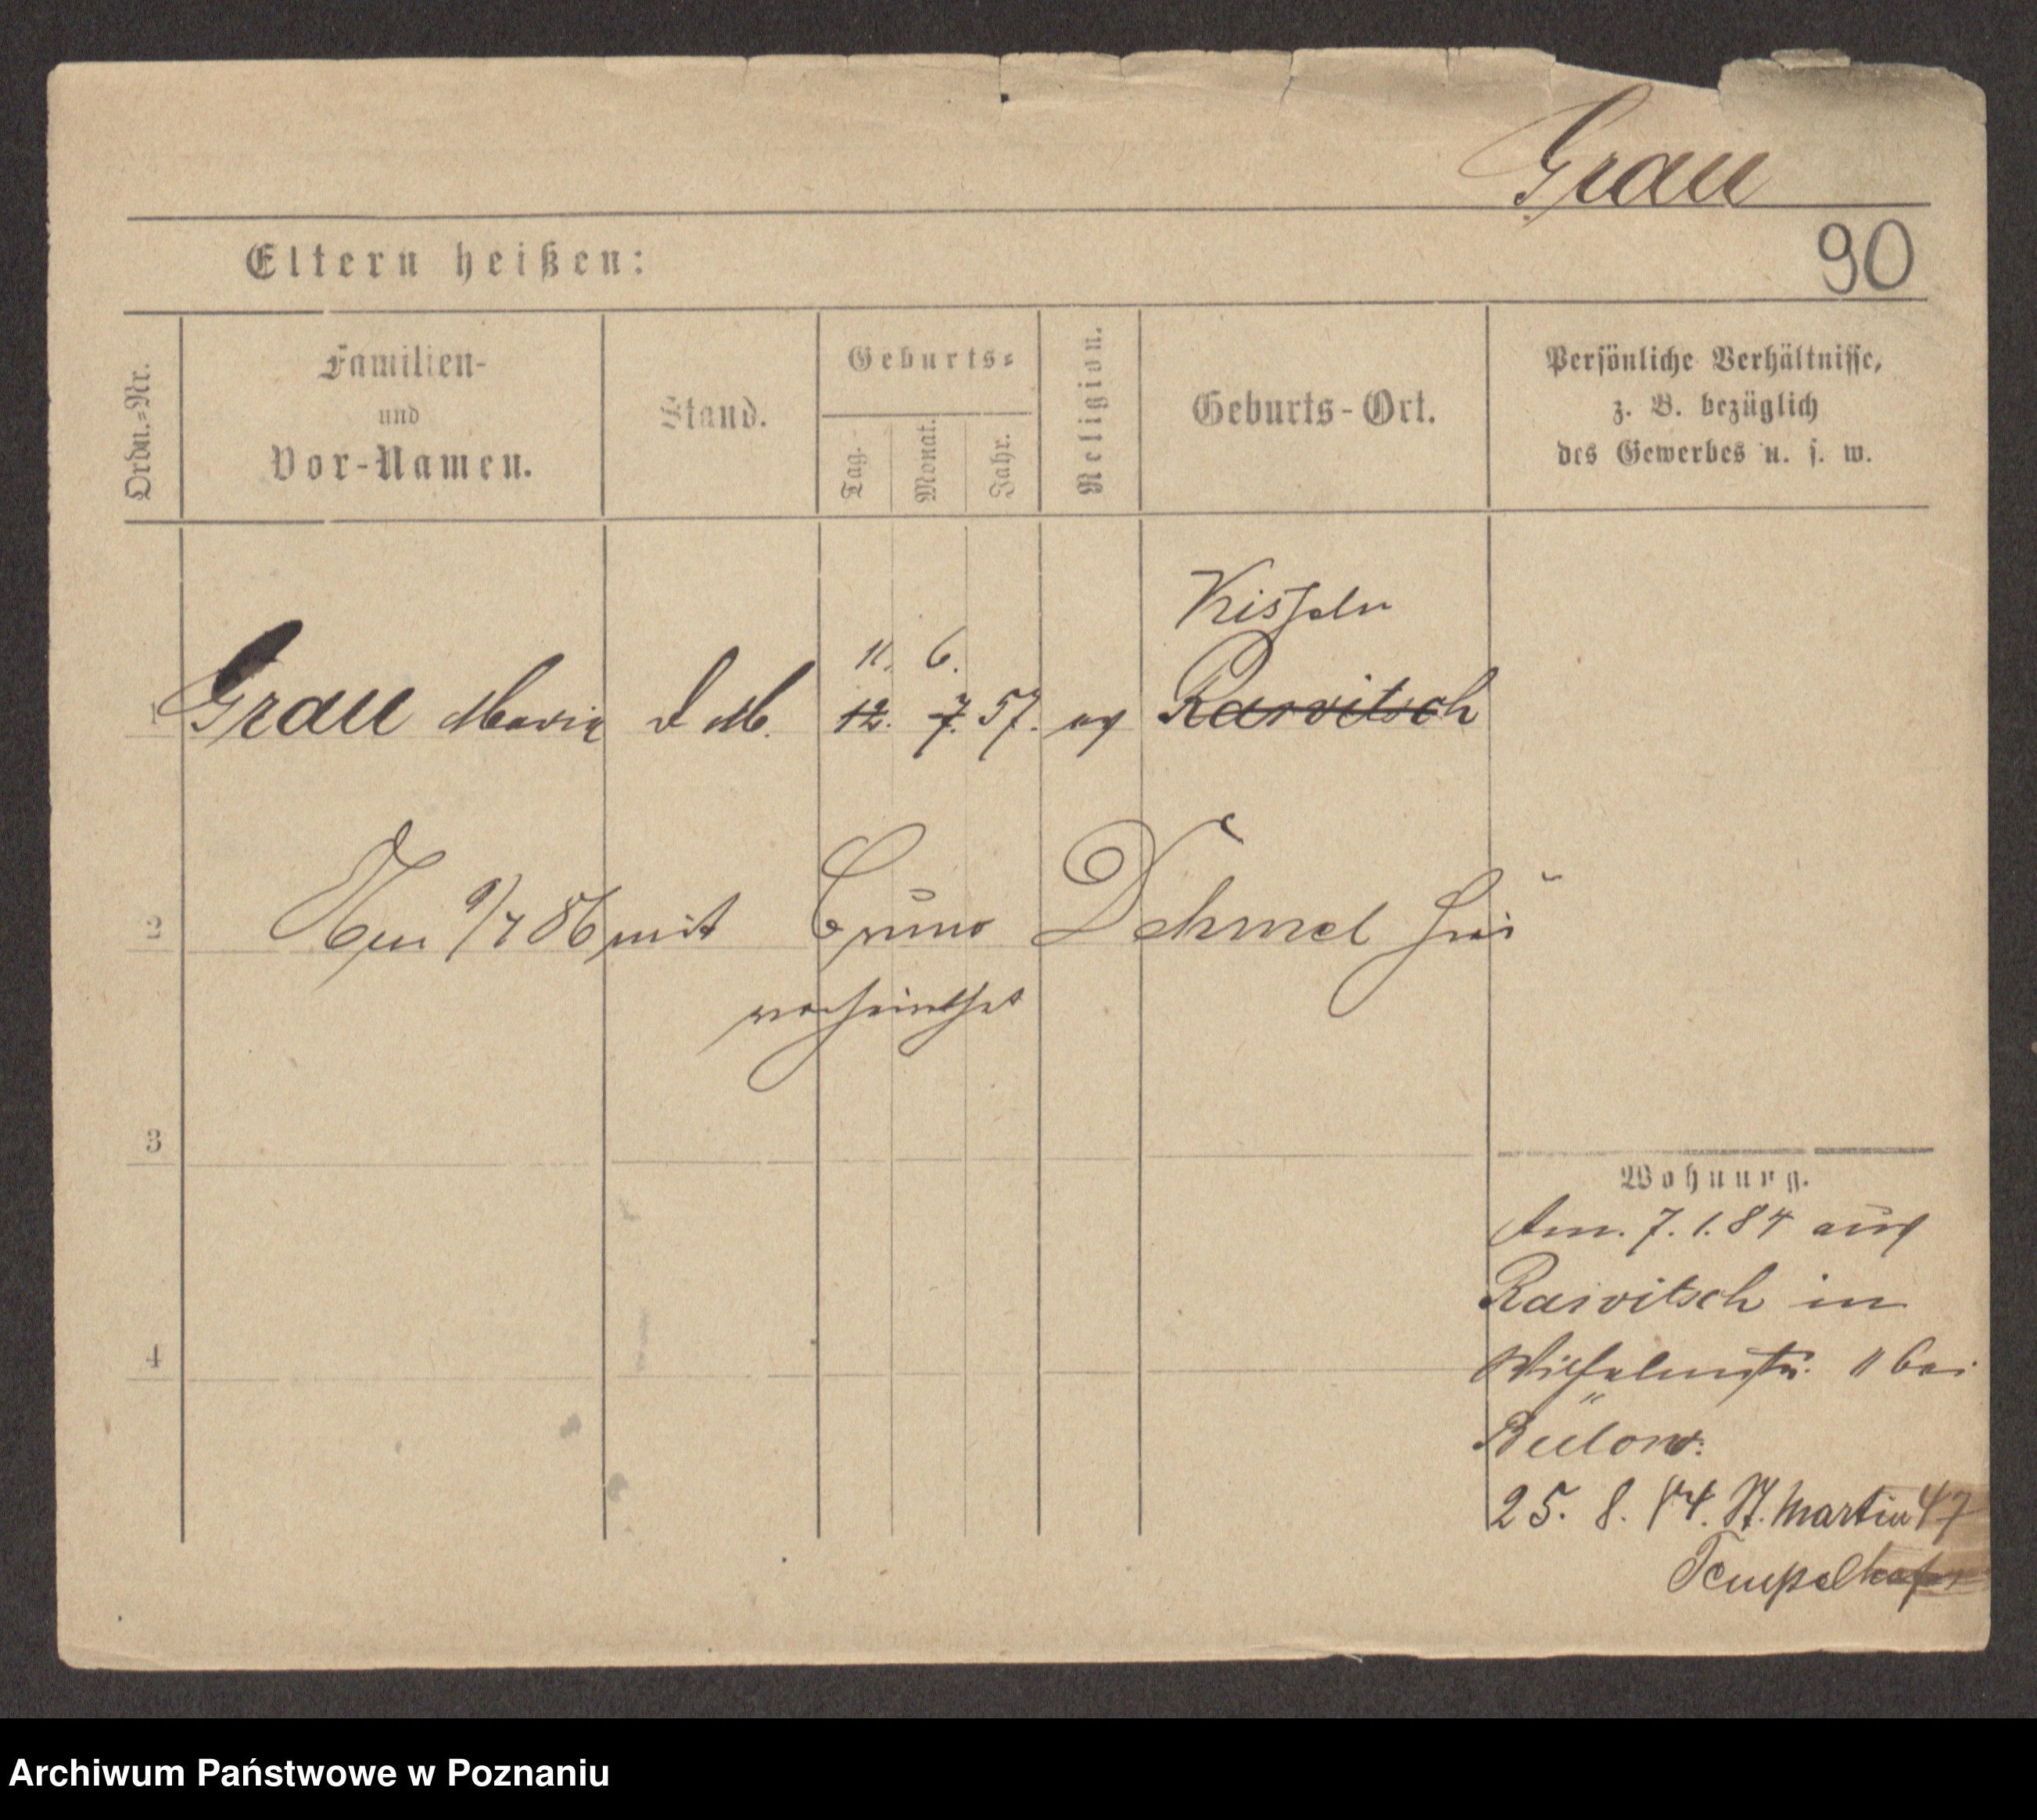 Grau
90
Eltern heißen:
Ordn.=Nr.
Familien-
und
Vor-Namen.
Stand.
Geburts=
Tag.
Monat.
Jahr.
Religion.
Geburts-Ort.
Persönliche Verhältnisse,
z. B. bezüglich
des Gewerbes u. s. w.
11. 6.
1 Grau Maria d M. 12. 7. 57. ev Rawitsch
2 86 mit Bruno Dehmel hier
verheirathet
3
Wohnung.
Am. 7. 1. 84 aus
Rawitsch in
4 Wilhelmstr. 11 bei
Bülow.
25. 8. 84. St. Martin 47
Tempelhof
Archiwum Państwowe w Poznaniu